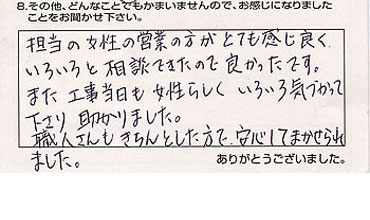 8.その他、どんなことでもかまいませんので、お感じになりました
ことをお聞かせ下さい。
担当の女性の営業の方がとても感じ良く
いろいろと相談できたので良かったです。
また工事当日も女性らしくいろいろ気づかって
下さり助かりました。
職人さんもきちんとした方で、安心してまかせられ
ました。
ありがとうございました。